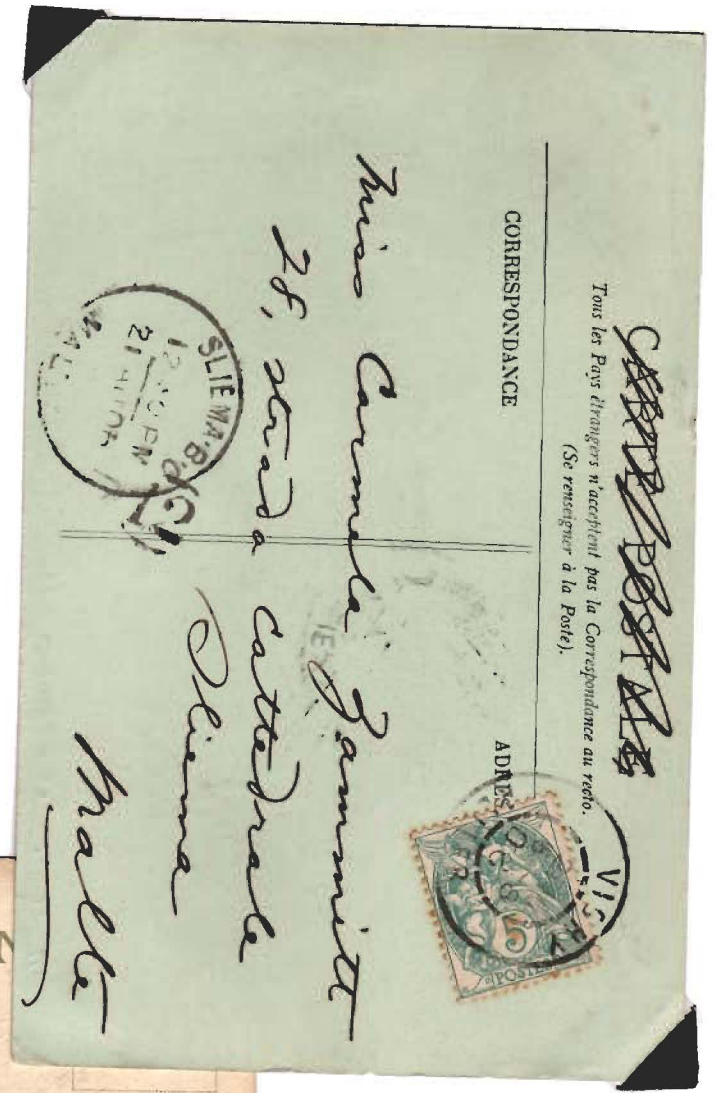 CARTE POSTALE
Tous les Pays étrangers n'acceptent pas la Correspondance au recto.
(Se renseigner à la Poste).
CORRESPONDANCE
ADRES
5
POSTES
Miss Carmela Zammitt
28, strada Cattedrale
Sliema
Malte
SLIEMA·B.O
21 AU 06